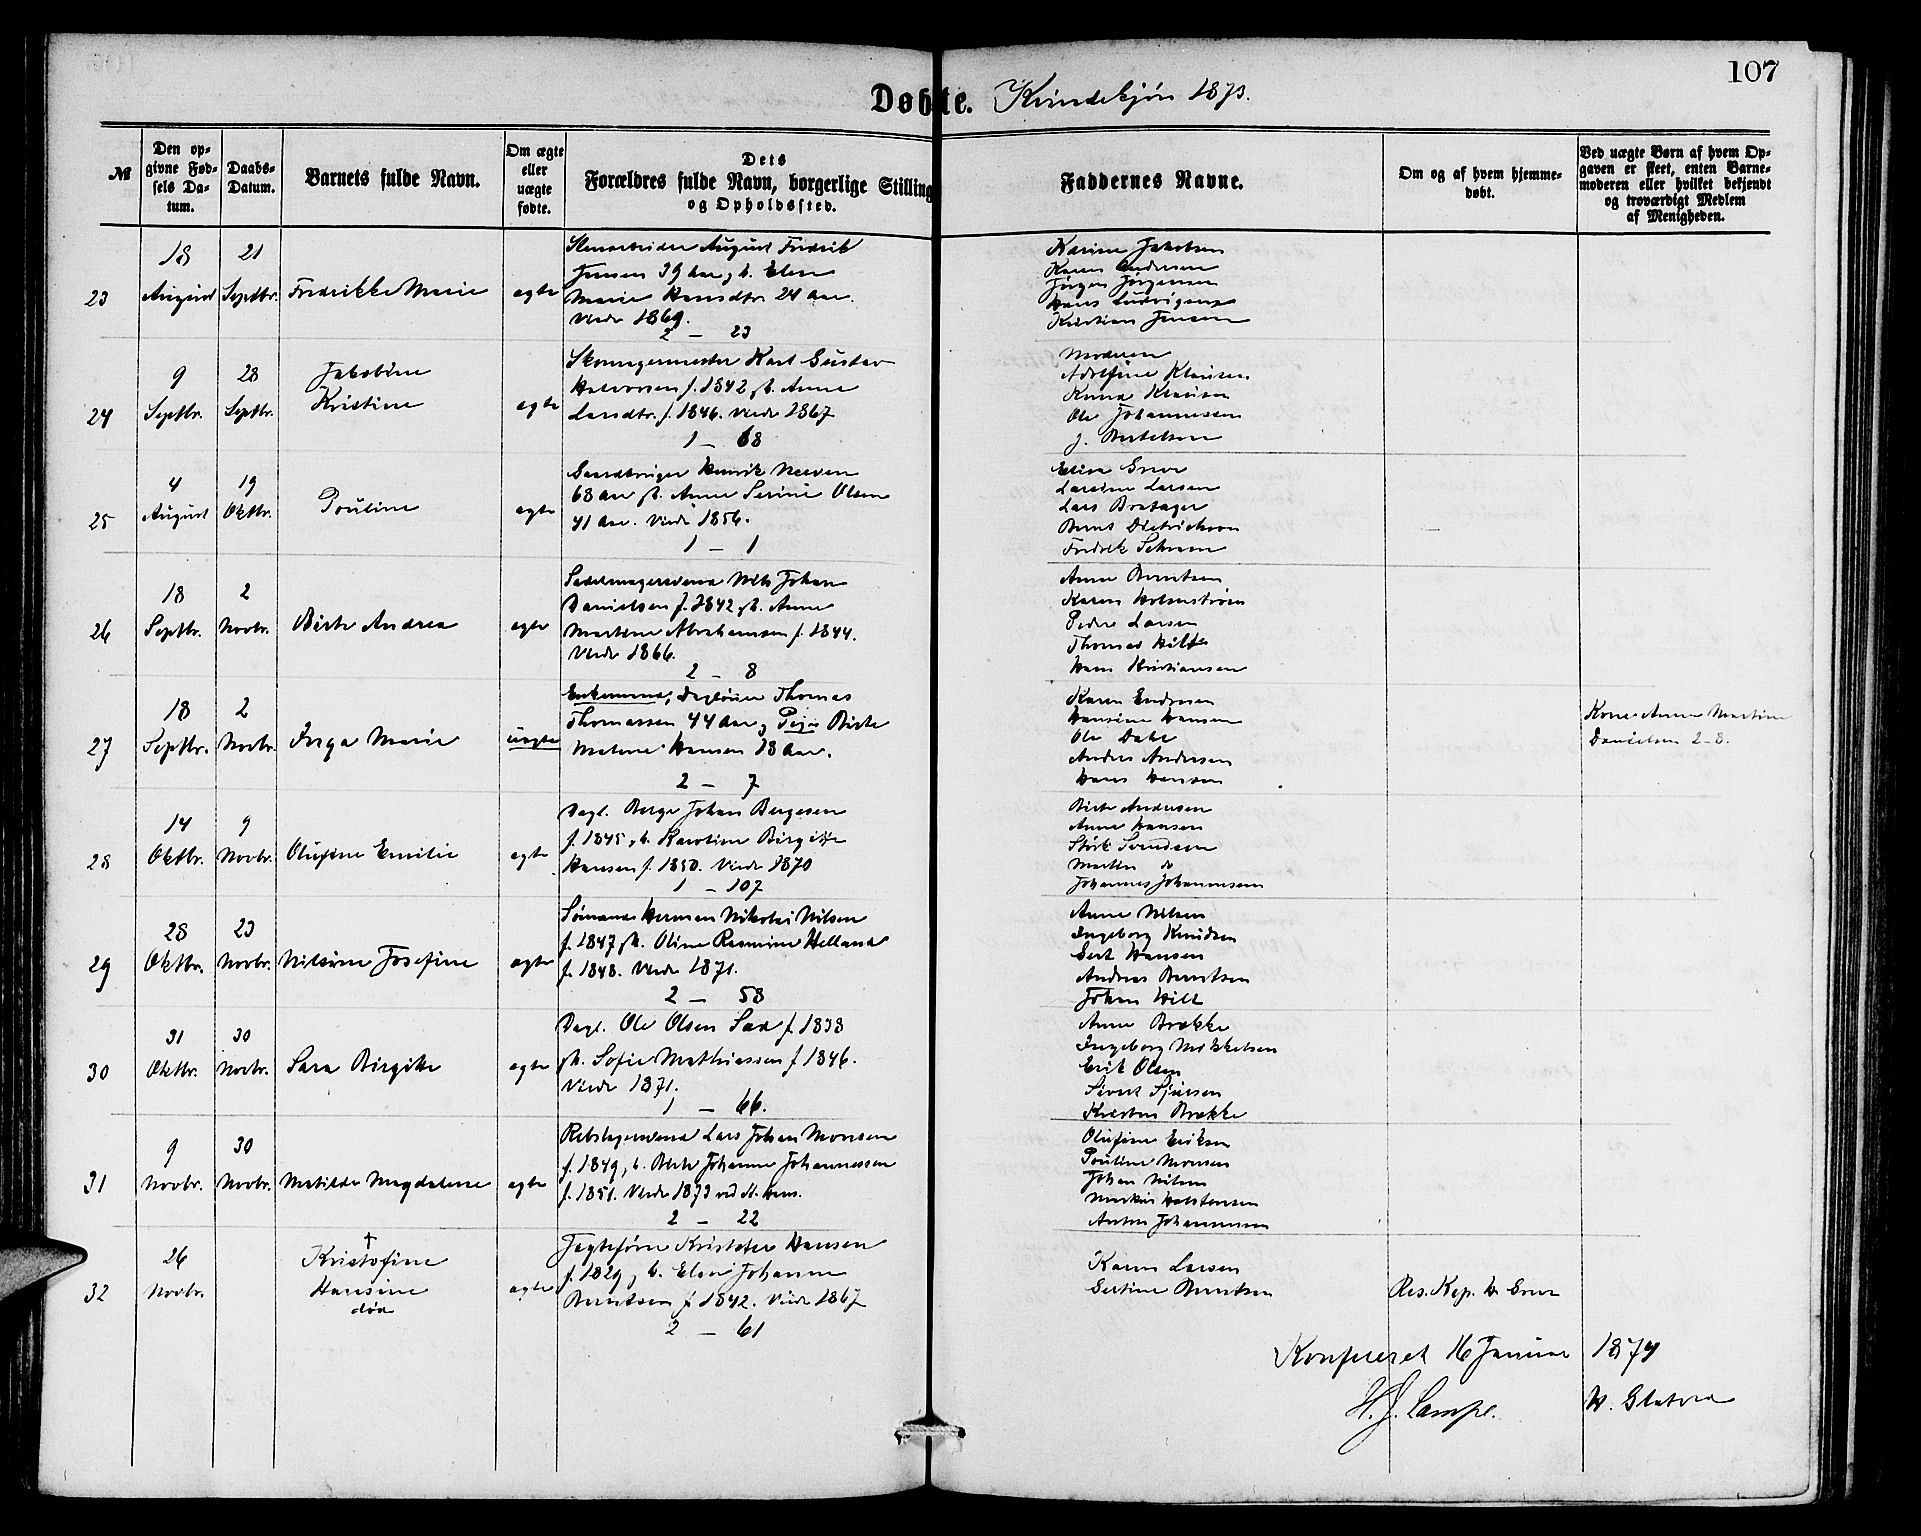 107
Døbte. Kvindekjøn 1873.
№
Den op-
givne Fød-
sels Da-
tum.
Daabs-
Datum.
Barnets fulde Navn.
Om ægte
eller
uægte
fødte.
Dets
Forældres fulde Navn, borgerlige Stilling
og Opholdssted.
Faddernes Navne.
Om og af hvem hjemme-
døbt.
Ved uægte Børn af hvem Op-
gaven er skeet, enten Barne-
moderen eller hvilket bekjendt
og troværdigt Medlem
af Menigheden.
23
18
August
21
Septbr.
Fredrikke Marie
ægte
August Fredrik
Jensen 39 Aar, h. Elen
Marie Hansdtr 24 Aar.
Viede 1869.
2 - 23
Karine Jakobsen
Karen Andersen
Jørgen Jørgensen
Hans Ludvigsen
Kristian Jensen
24
9
Septbr.
28
Septbr.
Jakobine
Kristine
ægte
Skomagermester Karl Gustav
Halvorsen f. 1842, h. Anne
Larsdtr. f. 1846. Viede 1867
1 - 68
Moderen
Adolfine Klausen
Knud Klausen
Ole Johannesen
J. Bertelsen
25
4
August
19
Oktbr.
Pouline
ægte
Gaardbruger Henrik
63 Aar, h. Anne Serine Olsen
41 Aar. Viede 1856.
1 - 1
Elisa Greve
Larsine Larsen
Lars Bratager
Bernt Dietrichson
Fredrik Schram
26
18
Septbr.
2
Novbr.
Birte Andrea
ægte
Sadelmagersvend Nils Johan
Danielsen f. 1842, h. Anne
Martine Abrahamsen f. 1844.
Viede 1866.
2 - 8
Anne Berntsen
Karen Holmstrøm
Peder Larsen
Thomas Hilt
Hans Kristiansen
27
18
Septbr.
2
Novbr.
Inga Marie
uægte
Enkemand, Dagløner Thomas
Thomassen 44 Aar, Pige Birte
Malene Hansen 23 Aar.
2 - 7
Karen Endresen
Hansine Hansen
Ole Dahl
Andreas Andersen
Hans Hansen
Kone Anne Martine
Danielsen 2-8.
28
14
Oktbr.
9
Novbr.
Olufine Emilie
ægte
Dagl. Berge Johan Bergesen
f. 1845, h. Karoline Birgitte
Hansen f. 1850. Viede 1870
1 - 107
Birte Andersen
Anne Hansen
Størk Svendsen
Marthe do
Johannes Johannesen
29
28
Oktbr.
23
Novbr.
Nilsine Josefine
ægte
Sømand Herman Nikolai Nilsen
f. 1847, h. Oline Rasmine Helland
f. 1848. Viede 1871.
2 - 58
Anne Nilsen
Ingeborg Knudsen
Gert Hansen
Andreas Berntsen
Johan Hilt
30
31
Oktbr.
30
Novbr.
Sara Birgitte
ægte
Dagl. Ole Olsen f. 1838
h. Sofie Mathiassen f. 1846.
Viede 1871.
1 - 66.
Anne Brække
Ingeborg Mikkelsen
Erik Olsen
Sivert Sjursen
Kristen Brække
31
9
Novbr.
30
Novbr.
Matilde Magdalene
ægte
Rebslagersvend Lars Johan Monsen
f. 1849, h. Berte Johanne Johannessen
f. 1851. Viede 1873
2 - 22
Olufine Eriksen
Pouline Monsen
Johan Nilsen
Markus Halstensen
Anton Johannesen
32
26
Novbr.
†
Kristofine
Hansine
død
ægte
Jagtefører Kristofer Hansen
f. 1829, h. Elen Johanne
Berntsen f. 1842. Viede 1867
2 - 61
Karen Larsen
Gertine Berntsen
Res. Kap. Greve
Konfereret 16 Januar 1874
H. J. Lampe.